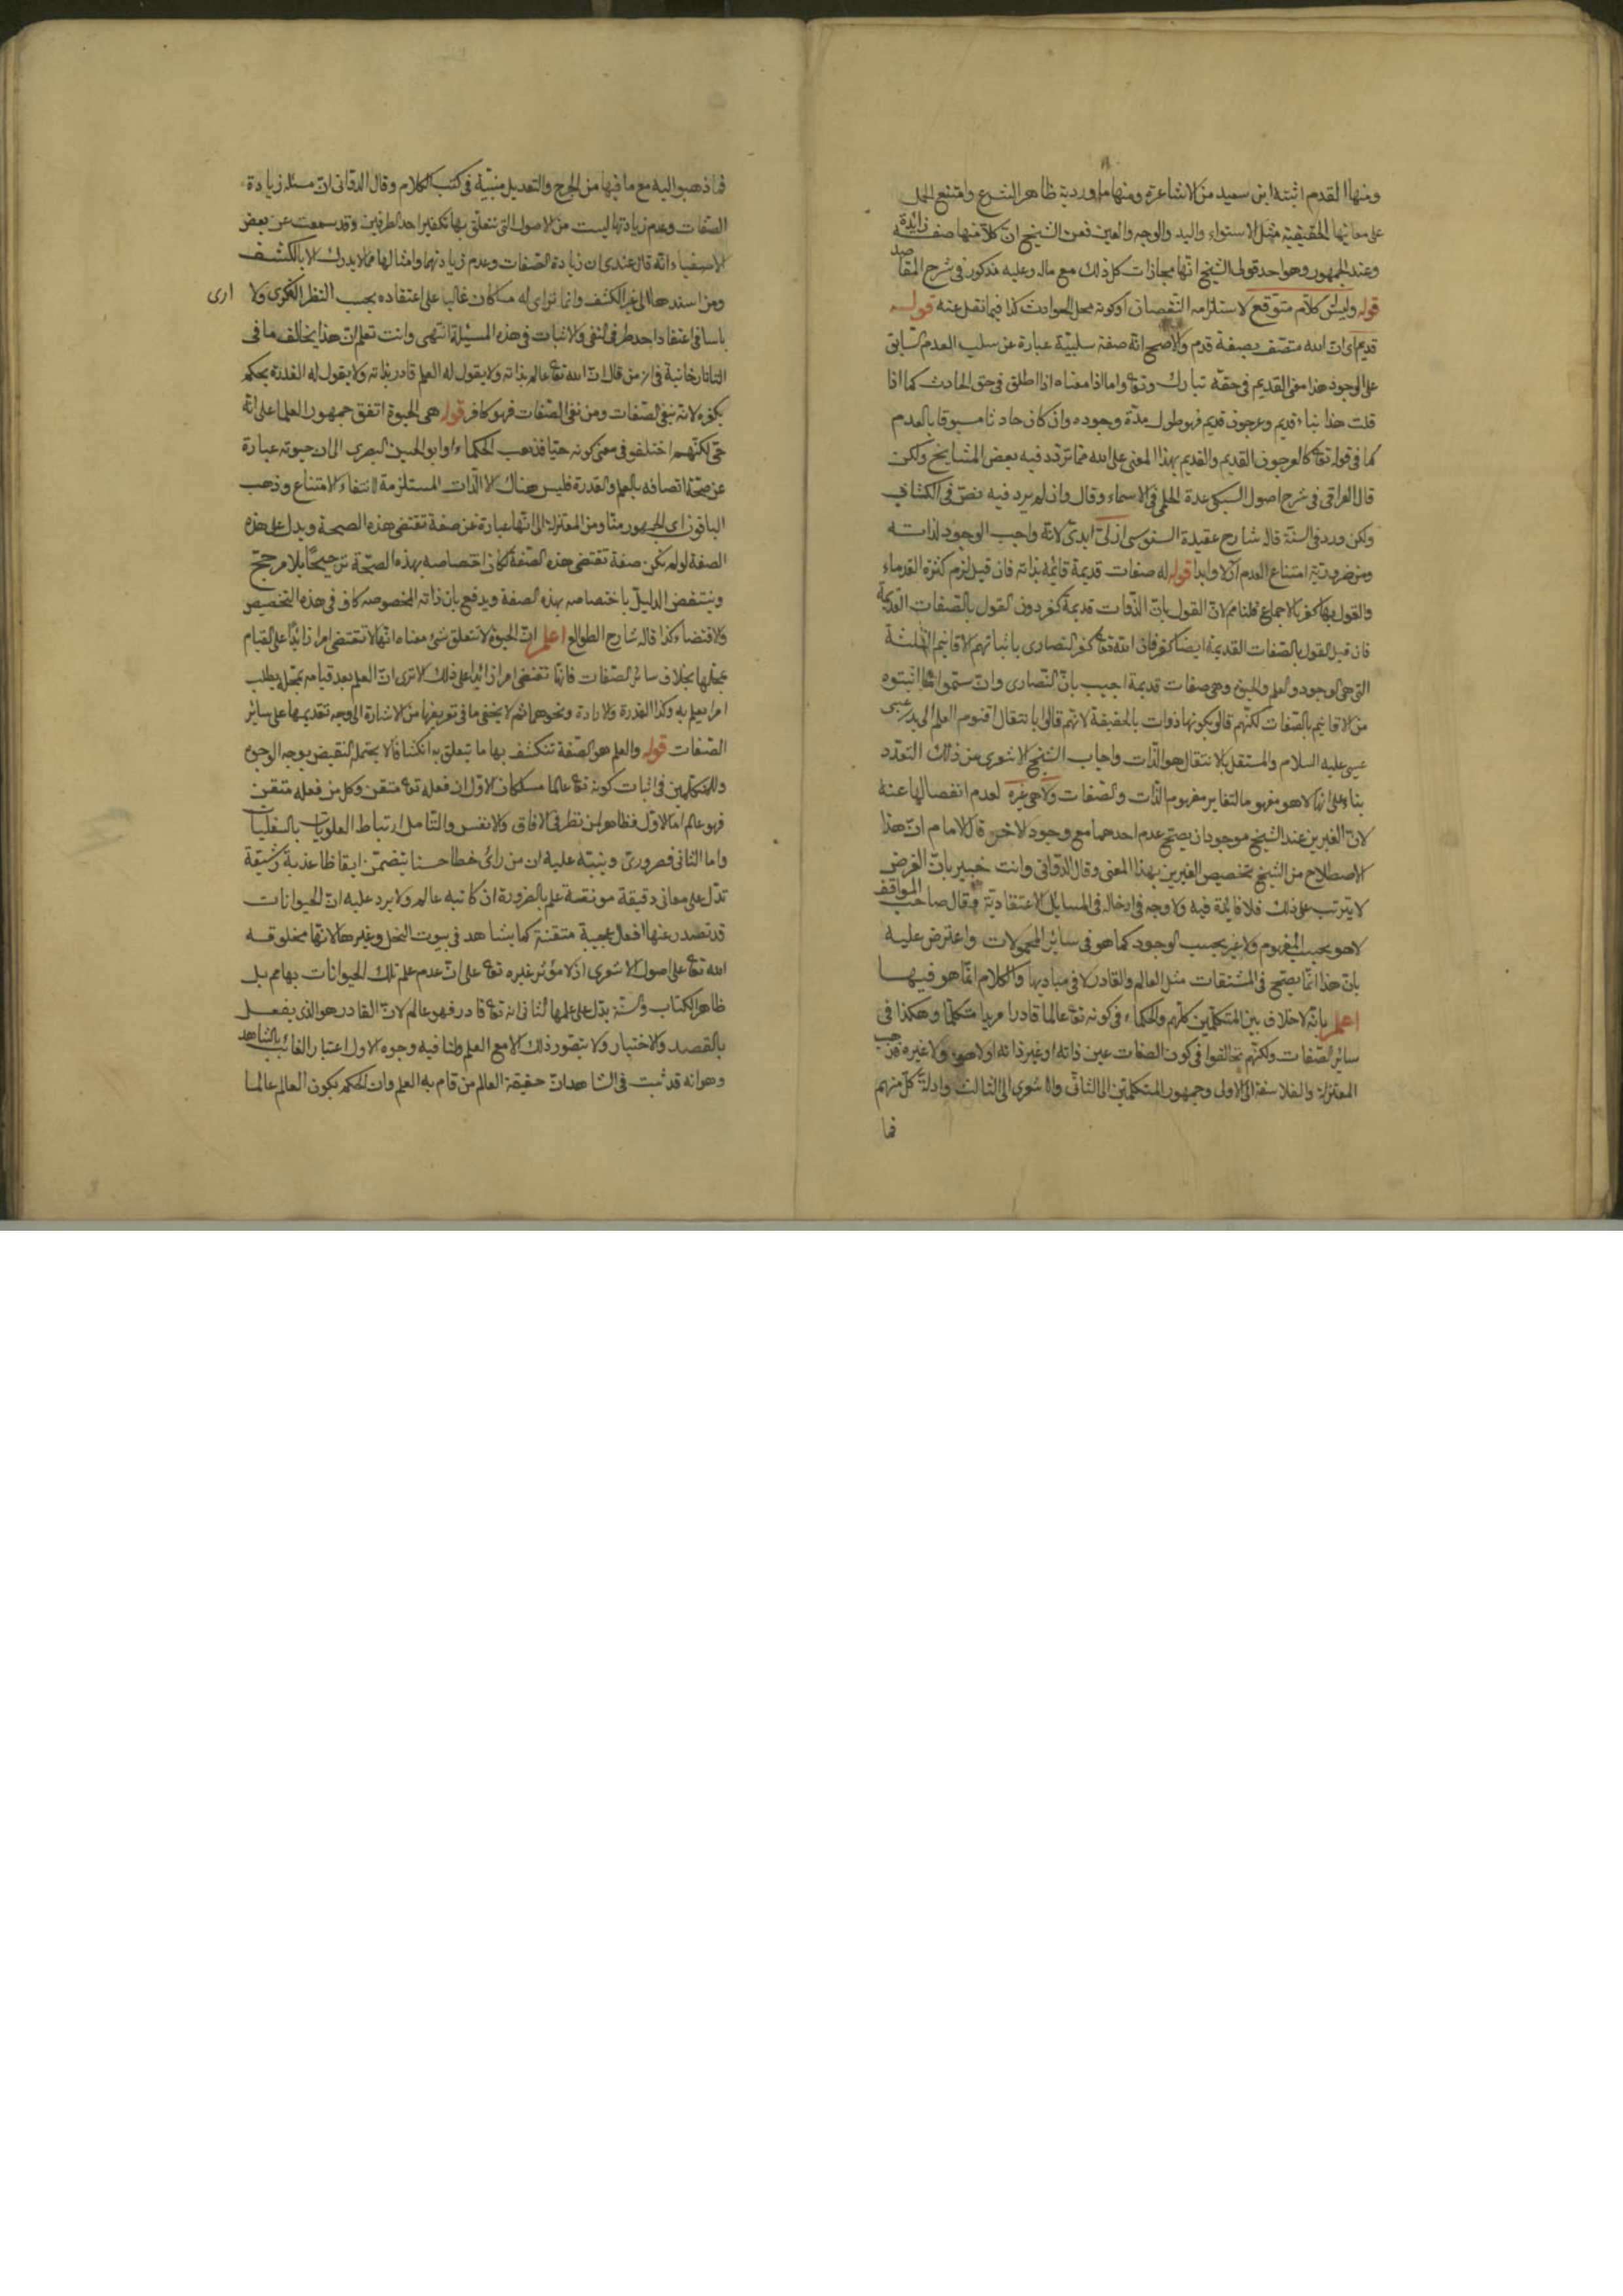 ومنها القدم اثبته ابن سعيد من الاشاعرة ومنها ما ورد به ظاهر الشرع وامتنع الحمل
على معانيها الحقيقية مثل الاستواء واليد والوجه والعين فعن الشيخ ان كلا منها صفة زائدة
وعند الجمهور وهو احد قولى الشيخ انها مجازات كل ذلك مع ماله وعليه مذكور فى شرح المقاصد
قوله وليس كلام متوقع لاستلزامه النقصان او كونه محل الحوادث كذا فيما نقل عنه قوله
قديم اى ان الله متصف بصفة قدم والاصح انه صفة سلبية عبارة عن سلب العدم السابق
على الوجود هذا معنى القديم فى حقه تبارك وتع واما اذا معناه اذا اطلق فى حق الحادث كما اذا
قلت هذا بناء قديم وعرجون قديم فهو طول مدة وجوده وان كان حادثا مسبوقا بالعدم
كما فى قوله تع كالعرجون القديم والقديم بهذا المعنى على الله مما تردد فيه بعض المشايخ ولكن
قال العراقى فى شرح اصول السبكى عدة الحليمى فى الاسماء وقال وان لم يرد فيه نص فى الكتاب
ولكن ورد فى السنة قال شارح عقيدة السنوسى ازلى ابدى لانه واجب الوجود لذاته
ومن ضروريته امتناع العدم ازلا وابدا قوله له صفات قديمة قائمة بذاته فان قيل لزم كثرة القدماء
والقول بها كفر بالاجماع قلنا مم لان القول بان الذوات قديمة كفر دون القول بالصفات القديمة
فان قيل القول بالصفات القديمة ايضا كفر فان الله تع كفر النصارى باثباتهم الاقانيم الثلثة
التى هى الوجود والعلم والحيوة وهى صفات قديمة اجيب بان النصارى وان سموا ما اثبتوه
من الاقانيم بالصفات لكنهم قالو بكونها ذوات بالحقيقة لانهم قالوا بانتقال اقنوم العلم الى بدن عيسى
عيسى عليه السلام والمستقل بالانتقال هو الذات واجاب الشيخ الاشعرى من ذلك التعدد
بناء على انها لا هو مفهوما لتغاير مفهوم الذات والصفات ولا هى غيره لعدم انفصالها عنه
لان الغيرين عند الشيخ موجودان يصح عدم احدهما مع وجود الاخر قال الامام ان هذا
الاصطلاح من الشيخ تخصيص الغيرين بهذا المعنى وقال الدوانى وانت خبير بان الغرض
لا يترتب على ذلك فلا فائدة فيه ولا وجه فى ادخاله فى المسايل الاعتقادية وقال صاحب المواقف
لا هو بحسب المفهوم ولا غير بحسب الوجود كما هو فى سائر المحمولات واعترض عليه
بان هذا انما يصح فى المشتقات مثل العالم والقادر لا فى مباديها والكلام انما هو فيها
اعلم بانه لا خلاف بين المتكلمين كلهم والحكماء فى كونه تع عالما قادرا مريدا متكلما وهكذا فى
سائر الصفات ولكنهم تخالفوا فى كون الصفات عين ذاته او غير ذاته او لا هو ولا غيره فذهب
المعتزلة والفلاسفة الى الاول وجمهور المتكلمين الى الثانى والاشعرى الى الثالث وادلة كل منهم
فما
فما ذهبوا اليه مع ما فيها من الجرح والتعديل مبينة فى كتب الكلام وقال الدوانى ان مسئلة زيادة
الصفات وعدم زيادتها ليست من الاصول التى يتعلق بها تكفير احد الطرفين وقد سمعت عن بعض
الاصفياء انه قال عندى ان زيادة الصفات وعدم زيادتها وامثالها مما لا يدرك الا بالكشف
ومن اسندها الى غير الكشف وانما تراى له ما كان غالبا على اعتقاده بحسب النظر الفكرى ولا ارى
باسا فى اعتقاد احد طرفى النفى والاثبات فى هذه المسئلة انتهى وانت تعلم ان هذا يخالف ما فى
التاتارخانية فى ان من قال ان الله تع عالم بذاته ولا يقول له العلم قادر بذاته ولا يقول له القدرة يحكم
بكفره لانه ينفى الصفات ومن نفى الصفات فهو كافر قوله هى الحيوة اتفق جمهور العلما على انه
حى لكنهم اختلفو فى معنى كونه حيا فذهب الحكماء وابو الحسين البصرى الى ان حيوته عبارة
عن صحة اتصافه بالعلم والقدرة فليس هناك الا الذات المستلزمة لانتفاء الامتناع وذهب
الباقون اى الجمهور منا ومن المعتزلة الى انها عبارة عن صفة تقتضى هذه الصحة ويدل على هذه
الصفة لو لم تكن صفة تقتضى هذه الصفة لكان اختصاصه بهذه الصحة ترجيحا بلا مرجح
وينتقض الدليل باختصاصه بهذه الصفة ويدفع بان ذاته المخصوصه كاف فى هذه التخصيص
والاقتضاء كذا قاله شارح الطوالع اعلم ان الحيوة لا تتعلق بشئ معناه انها لا تقتضى امرا زائدا على القيام
بمحلها بخلاف سائر الصفات فانها تقتضى امرا زائدا على ذلك الا ترى ان العلم بعد قيامه بمحله يطلب
امرا يعلم به وكذا القدرة والارادة ونحوهما ثم لا يخفى ما فى تعريفها من الاشارة الى وجه تقديمها على سائر
الصفات قوله والعلم هو الصفة تنكشف بها ما تتعلق به انكشافا لا يحتمل النقيض بوجه الوجوه
وللمتكلمين فى اثبات كونه تع عالما مسلكان الاول ان فعله تع متقن وكل من فعله متقن
فهو عالم اما الاول فظاهر لمن نظر فى الافاق والانفس والتامل ارتباط العلويات بالسفليات
واما الثانى فضرورى وينبه عليه ان من راى خطا حسنا يتضمن الفاظا عذبة رشيقة
تدل على معانى دقيقة مونقة علم بالضرورة ان كاتبه عالم ولا يرد عليه ان الحيوانات
قد تصدر عنها افعال عجيبة متقنة كما يشاهد فى بيوت النحل وغيرها لانها مخلوقة
الله تع على اصول الاشعرى اذ لا مؤثر غيره تع على ان عدم علم تلك الحيوانات بها مم بل
ظاهر الكتاب والسنة يدل على علمها الثانى انه تع قادر فهو عالم لان القادر هو الذى يفعل
بالقصد والاختيار ولا يتصور ذلك الا مع العلم ولنا فيه وجوه الاول اعتبار الغائب بالشاهد
وهو انه قد ثبت فى الشاهد ان حقيقة العالم من قام به العلم وان الحكم بكون العالم عالما